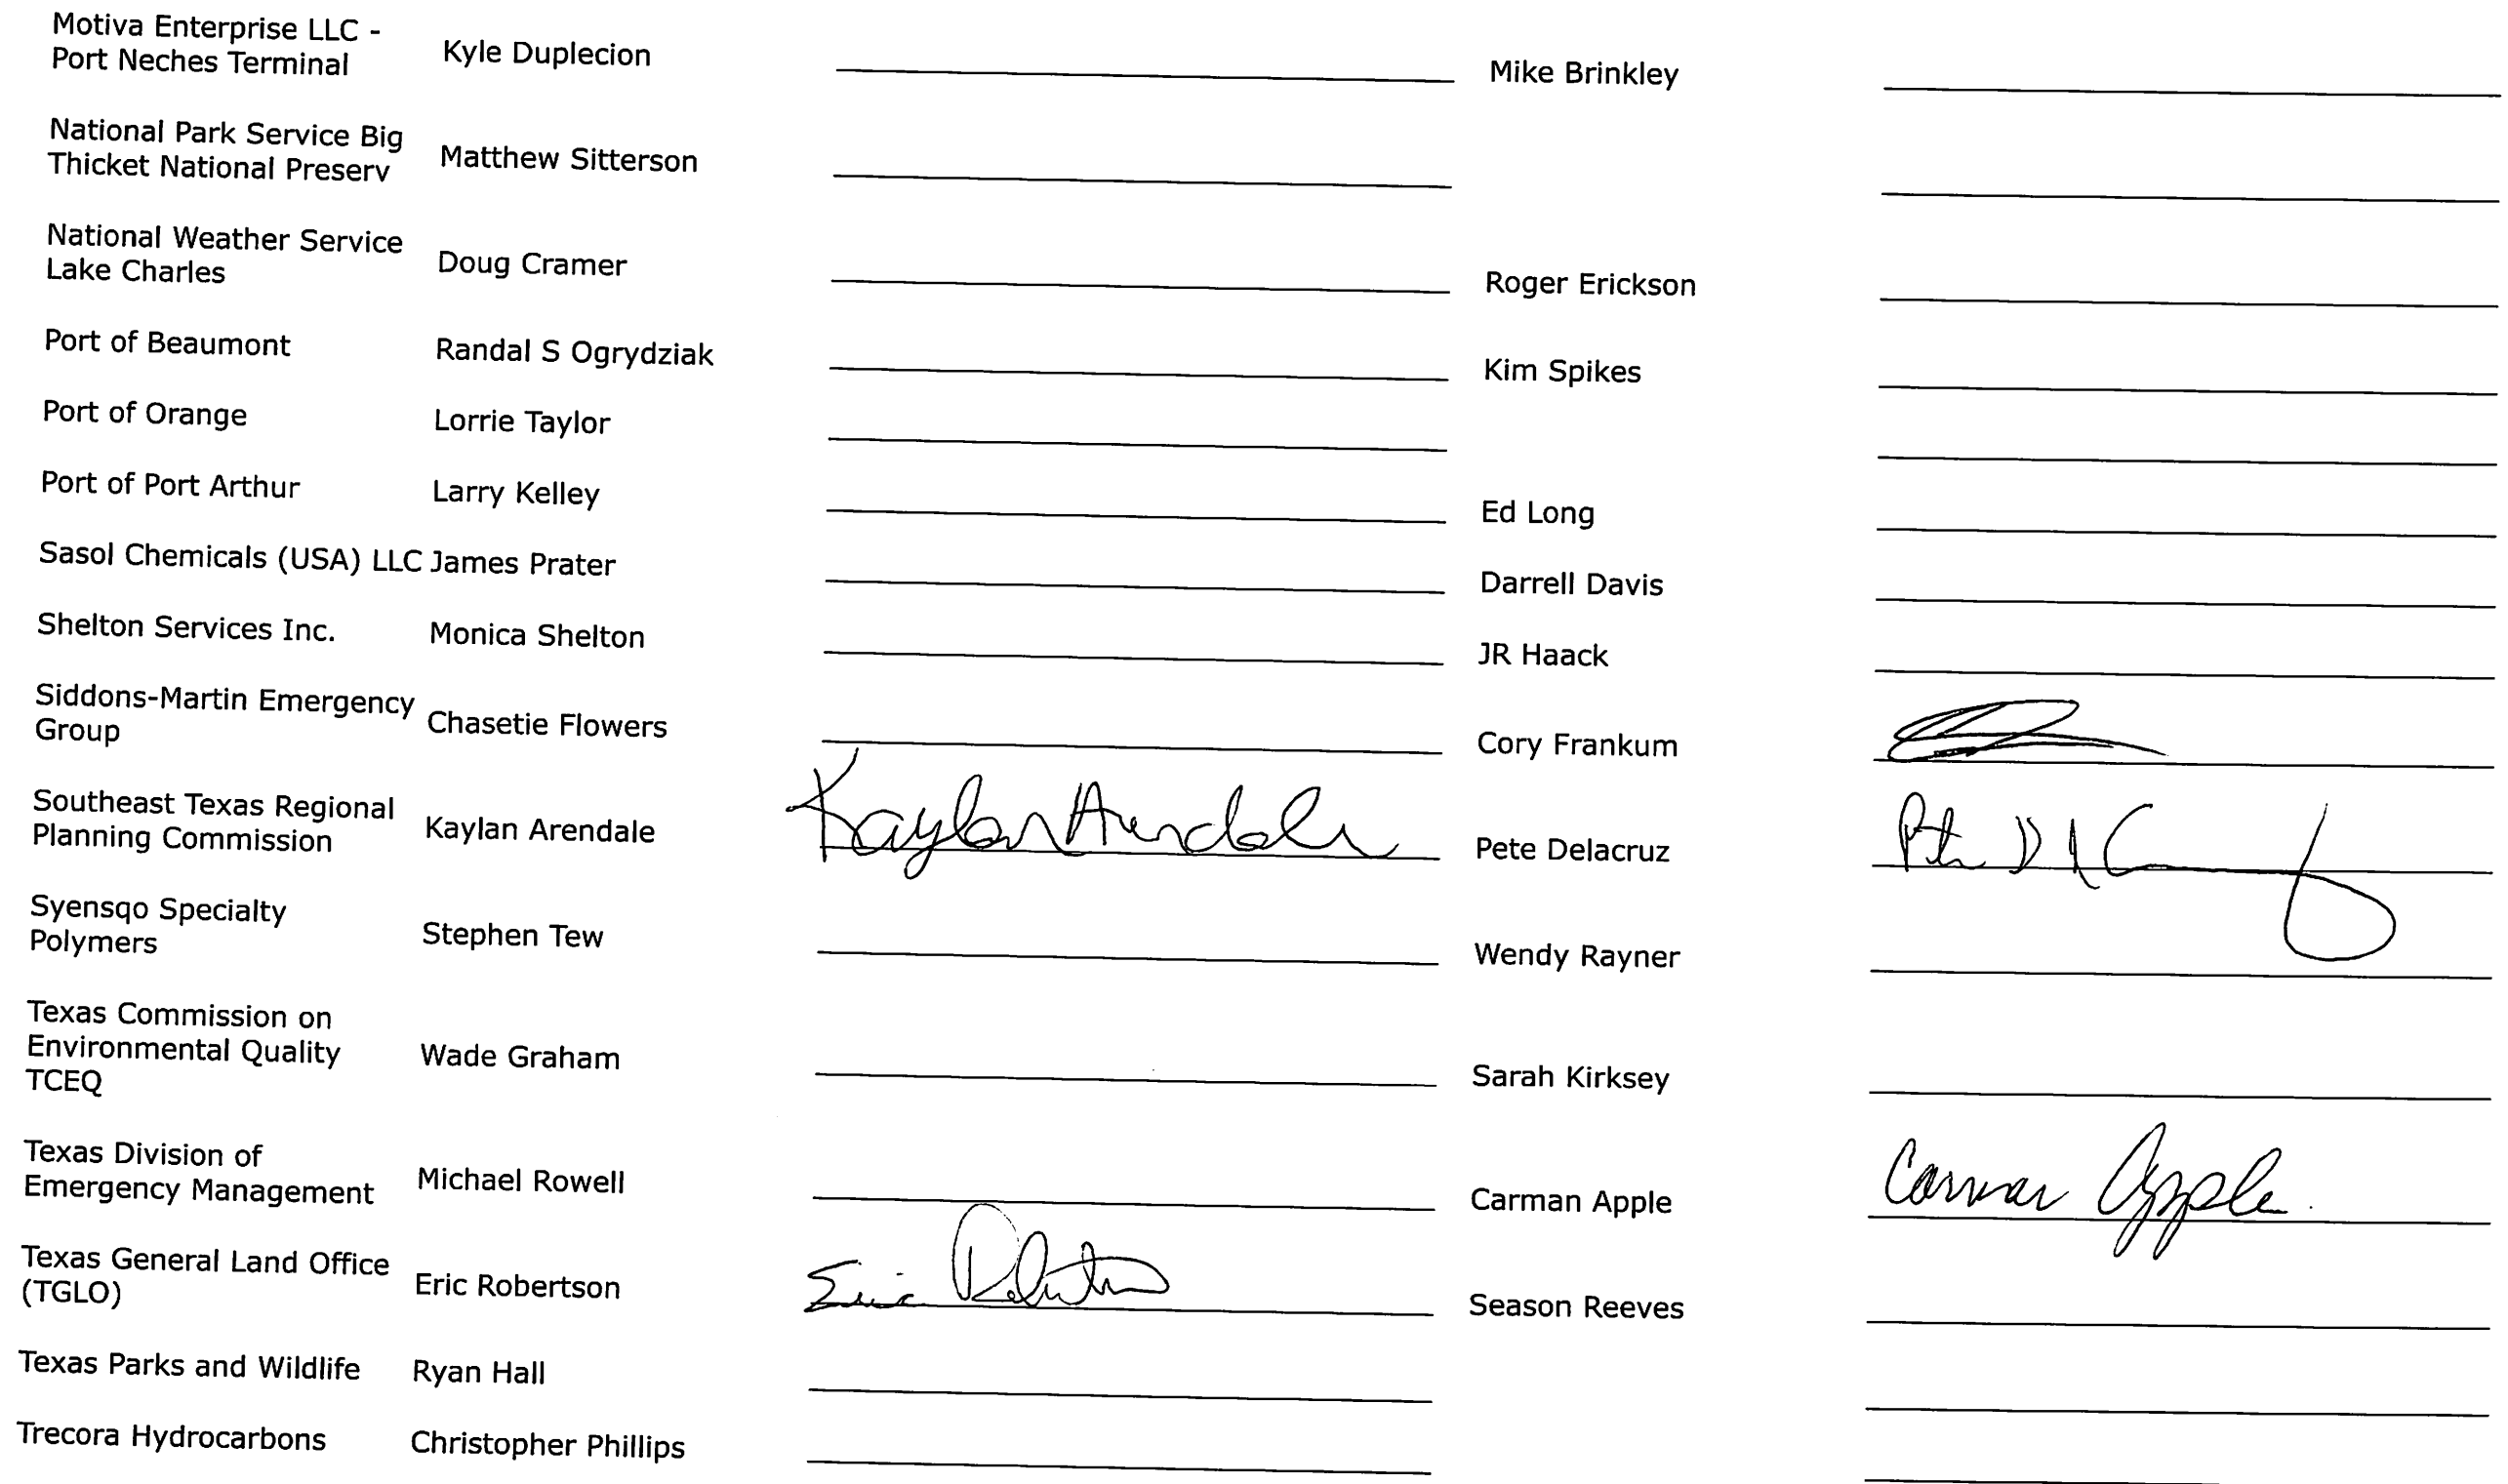 Motiva Enterprise LLC -
Port Neches Terminal
Kyle Duplecion
Mike Brinkley
National Park Service Big
Thicket National Preserv
Matthew Sitterson
National Weather Service
Lake Charles
Doug Cramer
Roger Erickson
Port of Beaumont
Randal S Ogrydziak
Kim Spikes
Port of Orange
Lorrie Taylor
Port of Port Arthur
Larry Kelley
Ed Long
Sasol Chemicals (USA) LLC
James Prater
Darrell Davis
Shelton Services Inc.
Monica Shelton
JR Haack
Siddons-Martin Emergency
Group
Chasetie Flowers
Cory Frankum
Southeast Texas Regional
Planning Commission
Kaylan Arendale
Kaylan Arendale
Pete Delacruz
Syensqo Specialty
Polymers
Stephen Tew
Wendy Rayner
Texas Commission on
Environmental Quality
TCEQ
Wade Graham
Sarah Kirksey
Texas Division of
Emergency Management
Michael Rowell
Carman Apple
Carman Apple
Texas General Land Office
(TGLO)
Eric Robertson
Eric Robertson
Season Reeves
Texas Parks and Wildlife
Ryan Hall
Trecora Hydrocarbons
Christopher Phillips